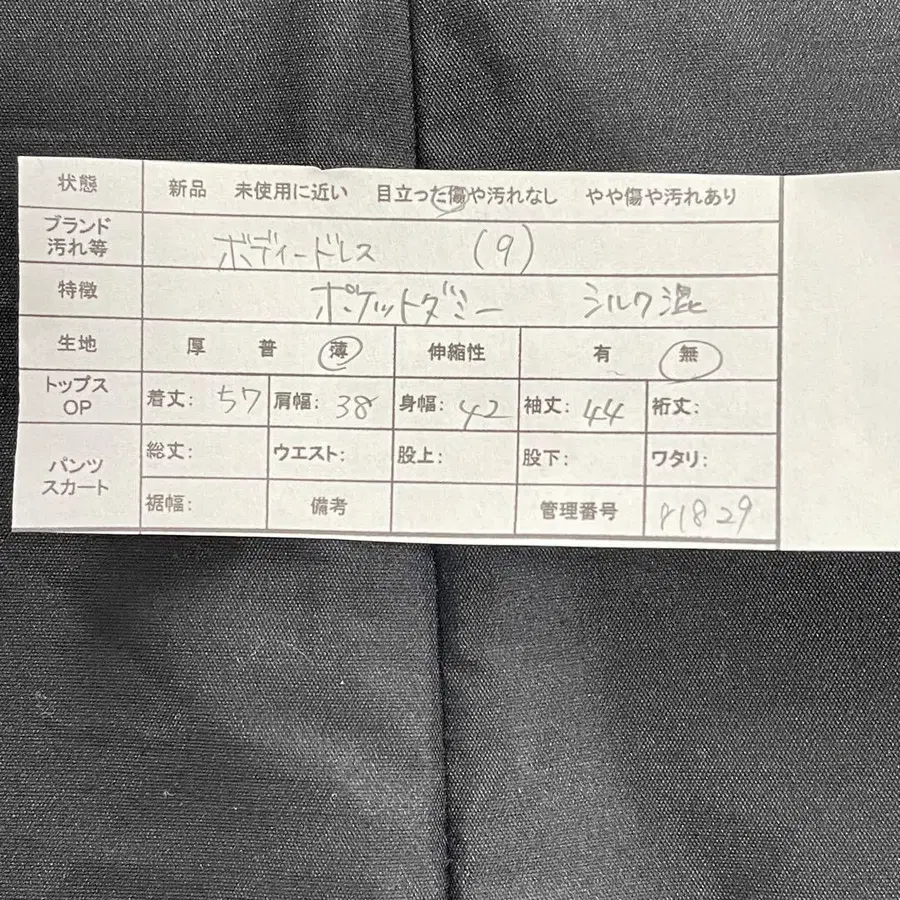 状態 新品 未使用に近い 目立った傷や汚れなし やや傷や汚れあり
ブランド
汚れ等 ボディードレス (9)
特徴 ポケットダミー シルク混
生地 厚 普 薄 伸縮性 有 無
トップス
OP 着丈: 57 肩幅: 38 身幅: 42 袖丈: 44 裄丈:
パンツ
スカート 総丈: ウエスト: 股上: 股下: ワタリ:
裾幅: 備考 管理番号